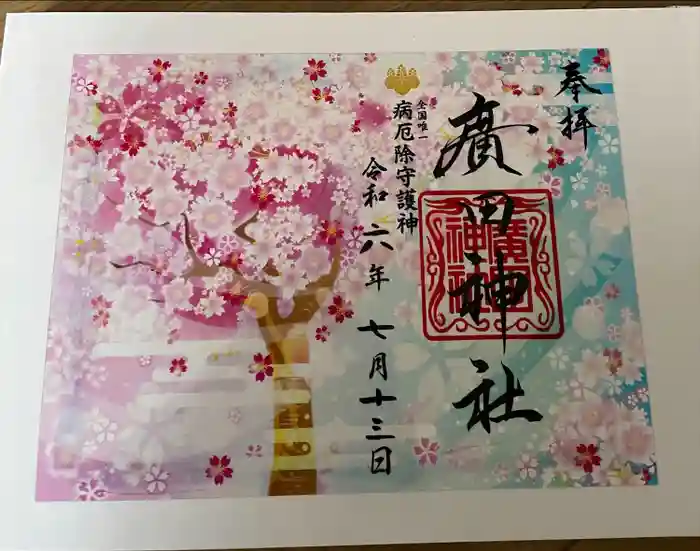 奉拝
廣田神社
廣田神社
全国唯一
病厄除守護神
令和六年 七月十三日